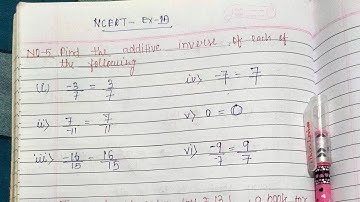 NCERT - Ex-1A
NO-5. Find the additive inverse of each of
the following
(i) -3/7 = 3/7
iv) -7 = 7
ii) 7/-11 = 7/11
v) 0 = 0
iii) -16/15 - 16/15
vi) -9/7 = 9/7